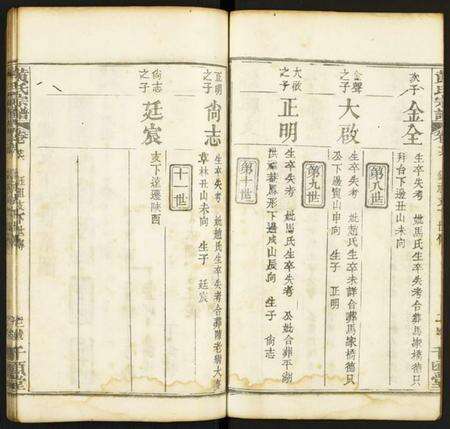 次子
金全
生卒失考 妣馬氏生卒失考合葬馬家橋德只
拜台下邊丑山未向
第八世
金聲之子
大啟
生卒失考 妣趙氏生卒未詳合葬馬家橋德只
公下邊艮山申向 生子 正明
第九世
大啟之子
正明
生卒失考 妣馬氏生卒失考 公妣合葬平湖
下邊戌山辰向 生子 尚志
第十世
正明之子
尚志
生卒失考 妣趙氏生卒失考合葬陳老廟大
草林丑山未向 生子 廷宸
十一世
尚志之子
廷宸
亥下莲遷陝西
黃氏宗譜
千頃堂